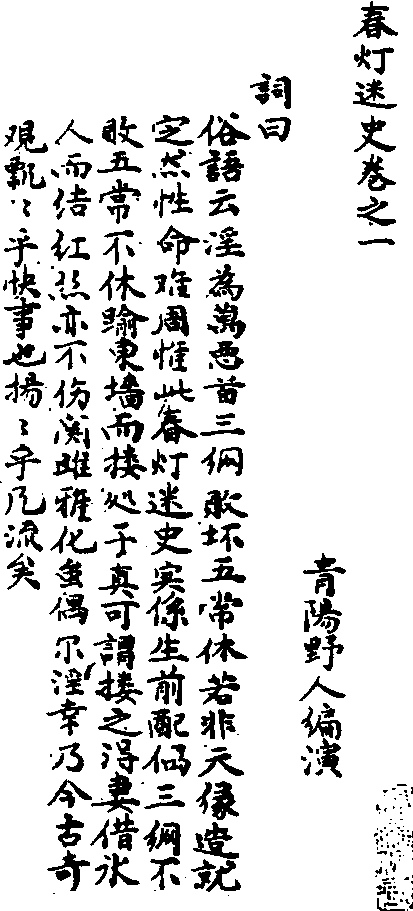 春灯迷史卷之一
青陽野人编演
詞曰
俗語云淫為萬悪首三纲敗坏五常休若非天缘造就
定然性命难周惟此春灯迷史实係生前配偶三纲不
敗五常不休踰東墙而搂処子真可謂搂之得妻借氷
人而结红丝亦不伤関雎雅化虽偶尔淫幸乃今古奇
观飘〻乎快事也揚〻乎风流矣